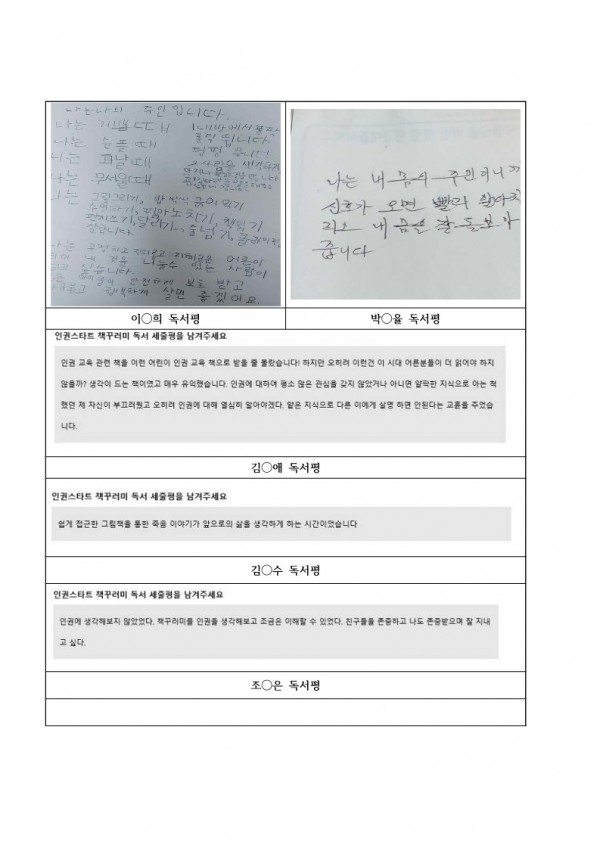 나는나의 주인입니다.
나는 기쁠때 내방에서
뜁니다.
나는 슬플때 펑펑 웁니다
나는 화날때
나는 무서울때
나는 그림그리기, 많이 먹기
피아노치기, 책읽기
편지쓰기, 달리기, 줄넘기,
잘합니다.
어른이
있는 사람이
싶습니다.
보호 받고
행복하게 살면 좋겠어요.
나는 내 몸의 주인이니까
신호가 오면 빨리 알아차
리고 내 몸을 잘 돌보아
줍니다
이○희 독서평
박○율 독서평
인권스타트 책꾸러미 독서 세줄평을 남겨주세요
인권 교육 관련 책을 이런 어린이 인권 교육 책으로 받을 줄 몰랐습니다! 하지만 오히려 이런건 이 시대 어른분들이 더 읽어야 하지
않을까? 생각이 드는 책이였고 매우 유익했습니다. 인권에 대하여 평소 많은 관심을 갖지 않았거나 아니면 얄팍한 지식으로 아는 척
했던 제 자신이 부끄러웠고 오히려 인권에 대해 열심히 알아야겠다. 얕은 지식으로 다른 이에게 설명 하면 안된다는 교훈을 주었습
니다.
김○애 독서평
인권스타트 책꾸러미 독서 세줄평을 남겨주세요
쉽게 접근한 그림책을 통한 죽음 이야기가 앞으로의 삶을 생각하게 하는 시간이었습니다
김○수 독서평
인권스타트 책꾸러미 독서 세줄평을 남겨주세요
인권에 생각해보지 않았었다. 책꾸러미를 인권을 생각해보고 조금은 이해할 수 있었다. 친구들을 존중하고 나도 존중받으며 잘 지내
고 싶다.
조○은 독서평